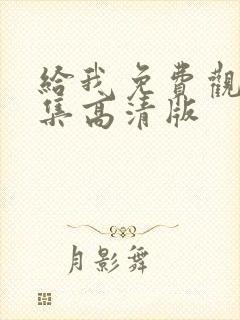 給我免費觀
集高清版
月影舞